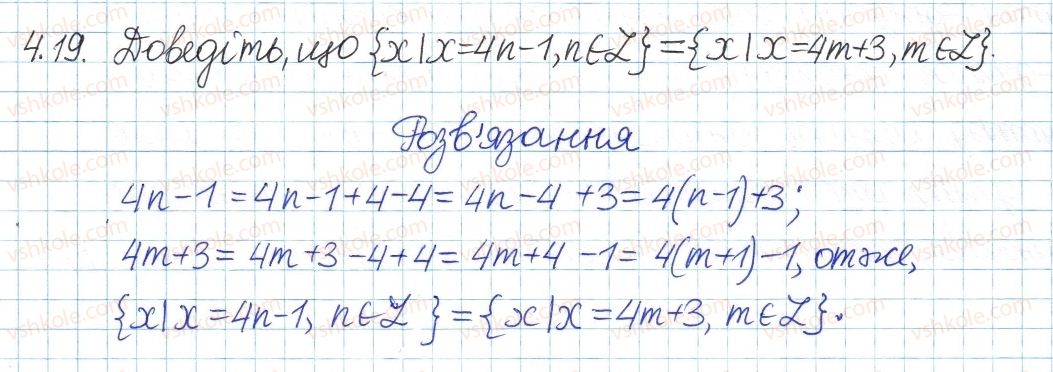 4.19. Доведіть, що {x | x=4n-1, n∈Z} = {x | x=4m+3, m∈Z}.
Розв'язання
4n-1 = 4n-1+4-4 = 4n-4 +3 = 4(n-1)+3;
4m+3 = 4m+3-4+4 = 4m+4 -1 = 4(m+1)-1, отже,
{x | x=4n-1, n∈Z} = {x | x=4m+3, m∈Z}.